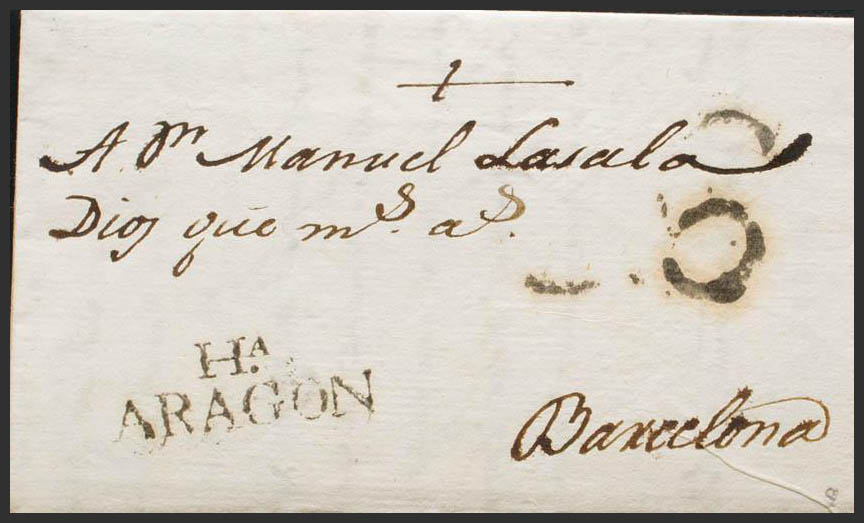 A Dn Manuel Lasala
Dios que ms. as.
Hª.
ARAGON
Barcelona